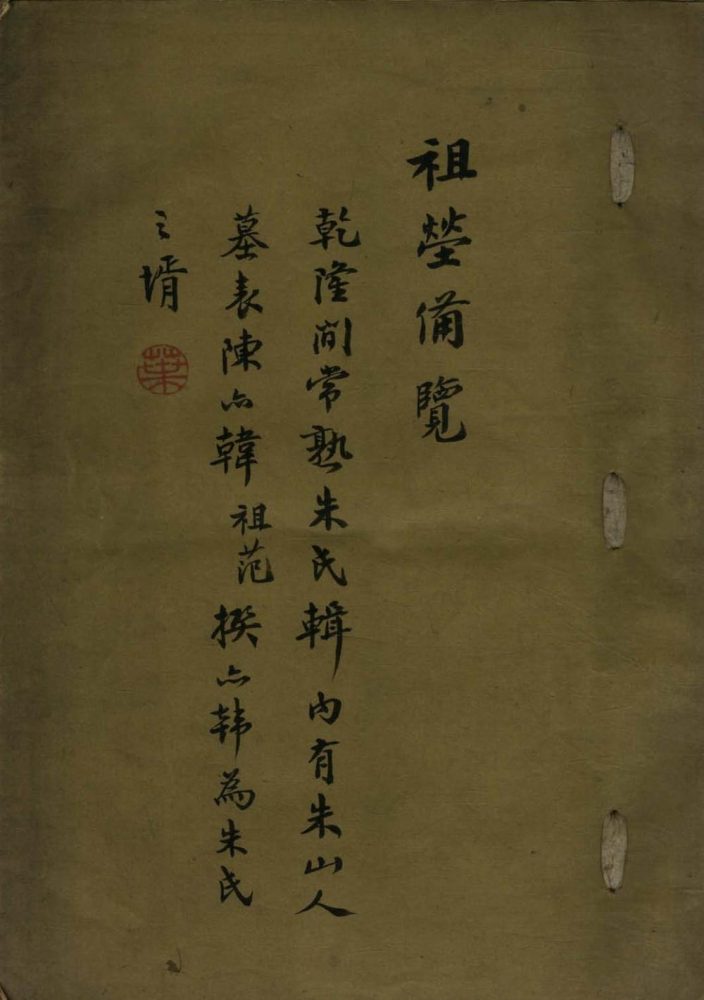 祖塋備覽
乾隆间常熟朱氏輯内有朱山人
墓表陳亦韓祖范撰亦韩為朱氏
之壻
葉